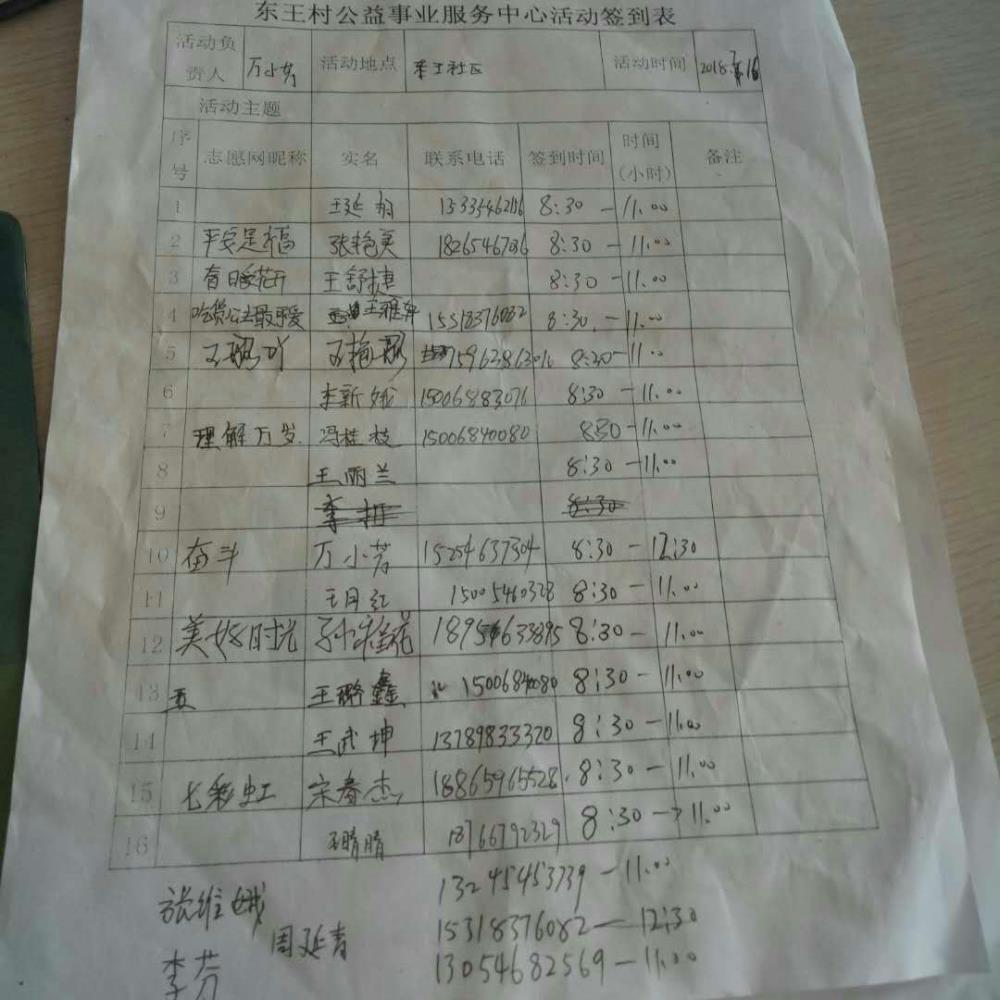 东王村公益事业服务中心活动签到表
活动负责人 万小芳 活动地点 东王社区 活动时间 2018.
活动主题
序号 志愿网昵称 实名 联系电话 签到时间 时间(小时) 备注
1 王延 8:30 - 11.00
2 平安是福 张艳美 8:30 - 11.00
3 春暖花开 王舒婕 8:30 - 11.00
4 吃货公主最可爱 8:30 - 11.00
5 8:30 - 11.00
6 李新娥 15006883076 8:30 - 11.00
7 理解万岁 冯桂枝 15006840080 8:30 - 11.00
8 王丽兰 8:30 - 11.00
9 8:30
10 奋斗 万小芳 15254637304 8:30 - 12:30
11 王月红 15005460328 8:30 - 11.00
12 美好时光 孙桂花 8:30 - 11.00
13 王璐鑫 15006840080 8:30 - 11.00
14 王武坤 13789833320 8:30 - 11.00
15 七彩虹 宋春杰 18865965528 8:30 - 11.00
16 王晴晴 18766792329 8:30 - 11.00
张维娥 13245453739 - 11.00
周延青 15318376082 - 12:30
李芬 13054682569 - 11.00